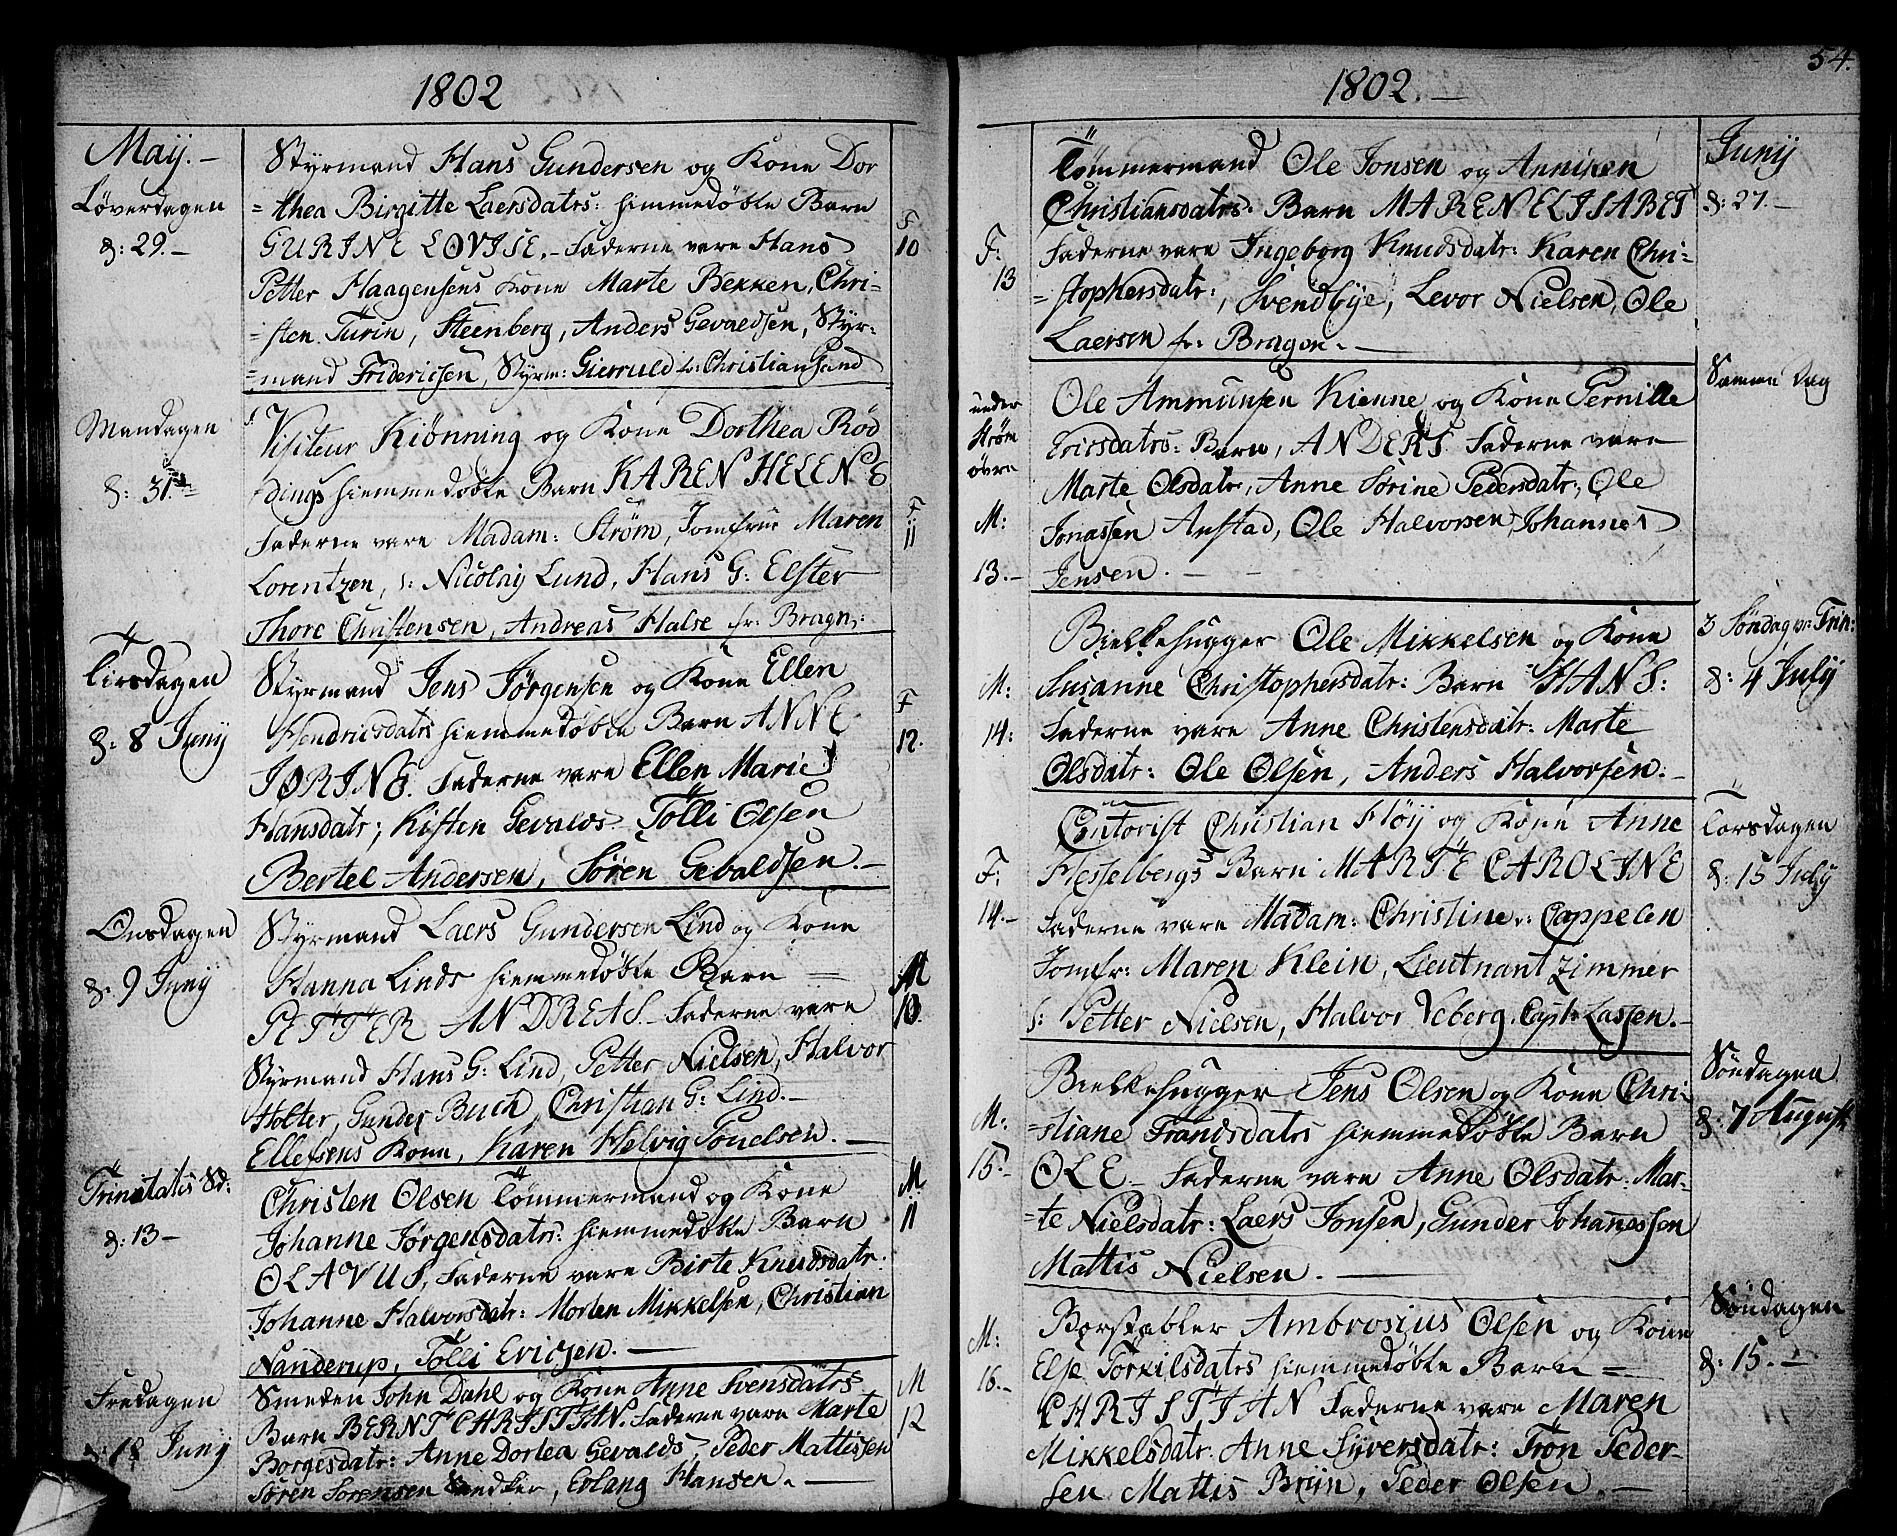 1802
Maij. -
Løverdagen
d: 29. -
Styrmand Hans Gundersen og Kone Dor
= thea Birgitte Laersdatrs: hiemmedøbte Barn
GURINE LOVISE. - Fadderne vare Hans
Petter Haagensens Kone Marte Bekken, Chri-
= sten Turin, Steenberg, Anders Gevaldsen, Styr-
= mand Fridericsen, Styrm: Gierruld fr: Christiansand
F
10
Mandagen
d: 31.
Visiteur Kiønning og Kone Dorthea Rød
dings hiemmedøbte Barn KAREN HELENE
Fadderne vare Madam: Strøm, Jomfrue Maren
Lorentzen, s: Nicolaij Lund, Hans G: Elster
Thore Christensen, Andreas Halse fr: Bragn:
F
11
Tirsdagen
d: 8 Junij
Styrmand Jens Jørgensen og Kone Ellen
Hendricsdatrs hiemmedøbte Barn ANNE
JØRINE. Fadderne vare Ellen Marie
Hansdatr; Kisten Gevalds Tölli Olsen
Bertel Andersen, Søren Gevaldsen. -
F
12.
Onsdagen
d: 9 Junij
Styrmand Laers Gundersen Lind og Kone
Hanna Linds hiemmedøbte Barn =
PETTER ANDREAS. Fadderne vare
Styrmand Hans G: Lind, Petter Nielsen, Halvor
Holter, Gunder Buch, Christian G: Lind. -
Ellefsens Kone, Karen Helvig Poulsen. -
M
10.
Trinitatis Sd:
d: 13 -
Christen Olsen Tömmermand og Kone
Johanne Jørgensdatrs: hiemmedøbte Barn
OLAVUS, Fadderne vare Birte Knudsdatr:
Johanne Halvorsdatr: Morten Mikkelsen, Christian
Nanderup, Tölli Ericsen. -
M
11
Fredagen
d: 18 Junij
Smeden John Dahl og Kone Anne Svensdatrs
Barn BERNT CHRISTIAN. Fadderne vare Marte
Borgesdatr: Anne Dortea Gevalds, Peder Mattissen
Søren Sorensen, Erlang Hansen. -
M
12
1802. -
54.
F:
13
Tömmermand Ole Jonsen og Anniken
Christiansdatrs: Barn MAREN ELISABET
Fadderne vare Ingeborg Knudsdatr: Karen Chri-
= stophersdatr:, Svendbye, Levor Nielsen, Ole
Laersen fr: Bragon. -
Junij
d: 27. -
under
Strøm
øvre
M:
13. -
Ole Ammunsen Kienne og Kone Pernille
Ericsdatrs: Barn, ANDERS. Fadderne vare
Marte Olsdatr, Anne Sørine Pedersdatr:, Ole
Jonassen Anstad, Ole Halvorsen, Johannes
Jensen. -
Samme Dag
M:
14:
Bielkehugger Ole Mikkelsen og Kone
Susanne Christophersdatr: Barn HANS:
Fadderne vare Anne Christensdatr: Marte
Olsdatr: Ole Olsen, Anders Halvorsen: -
3 Søndag p: Trin:
d: 4 Julij
F:
14. -
Contorist Christian Fløij og Kone Anne
Hesselbergs Barn MARTE CAROLINE
Fadderne vare Madam: Christine v: Cappelen
Jomfr: Maren Klein, Lieutnant Zimmer
s: Petter Nielsen, Halvor Veberg, Capt: Lassen. -
Torsdagen
d: 15 Julij
M:
15. -
Bielkehugger Jens Olsen og Kone Chri-
= stiane Frandsdatrs hiemmedøbte Barn
OLE - Fadderne vare Anne Olsdatr: Mar-
= te Nielsdatr: Laers Jonsen, Gunder Johannessen
Mattis Nielsen. -
Søndagen
d: 7 August
M:
16. -
Borstabler Ambrosius Olsen og Kone
Else Torkilsdatrs hiemmedøbte Barn =
CHRISTIAN Fadderne vare Maren
Mikkelsdatr. Anne Syversdatr: Tron Peder-
sen Mattis Bruun, Peder Olsen. -
Søndagen
d: 15. -